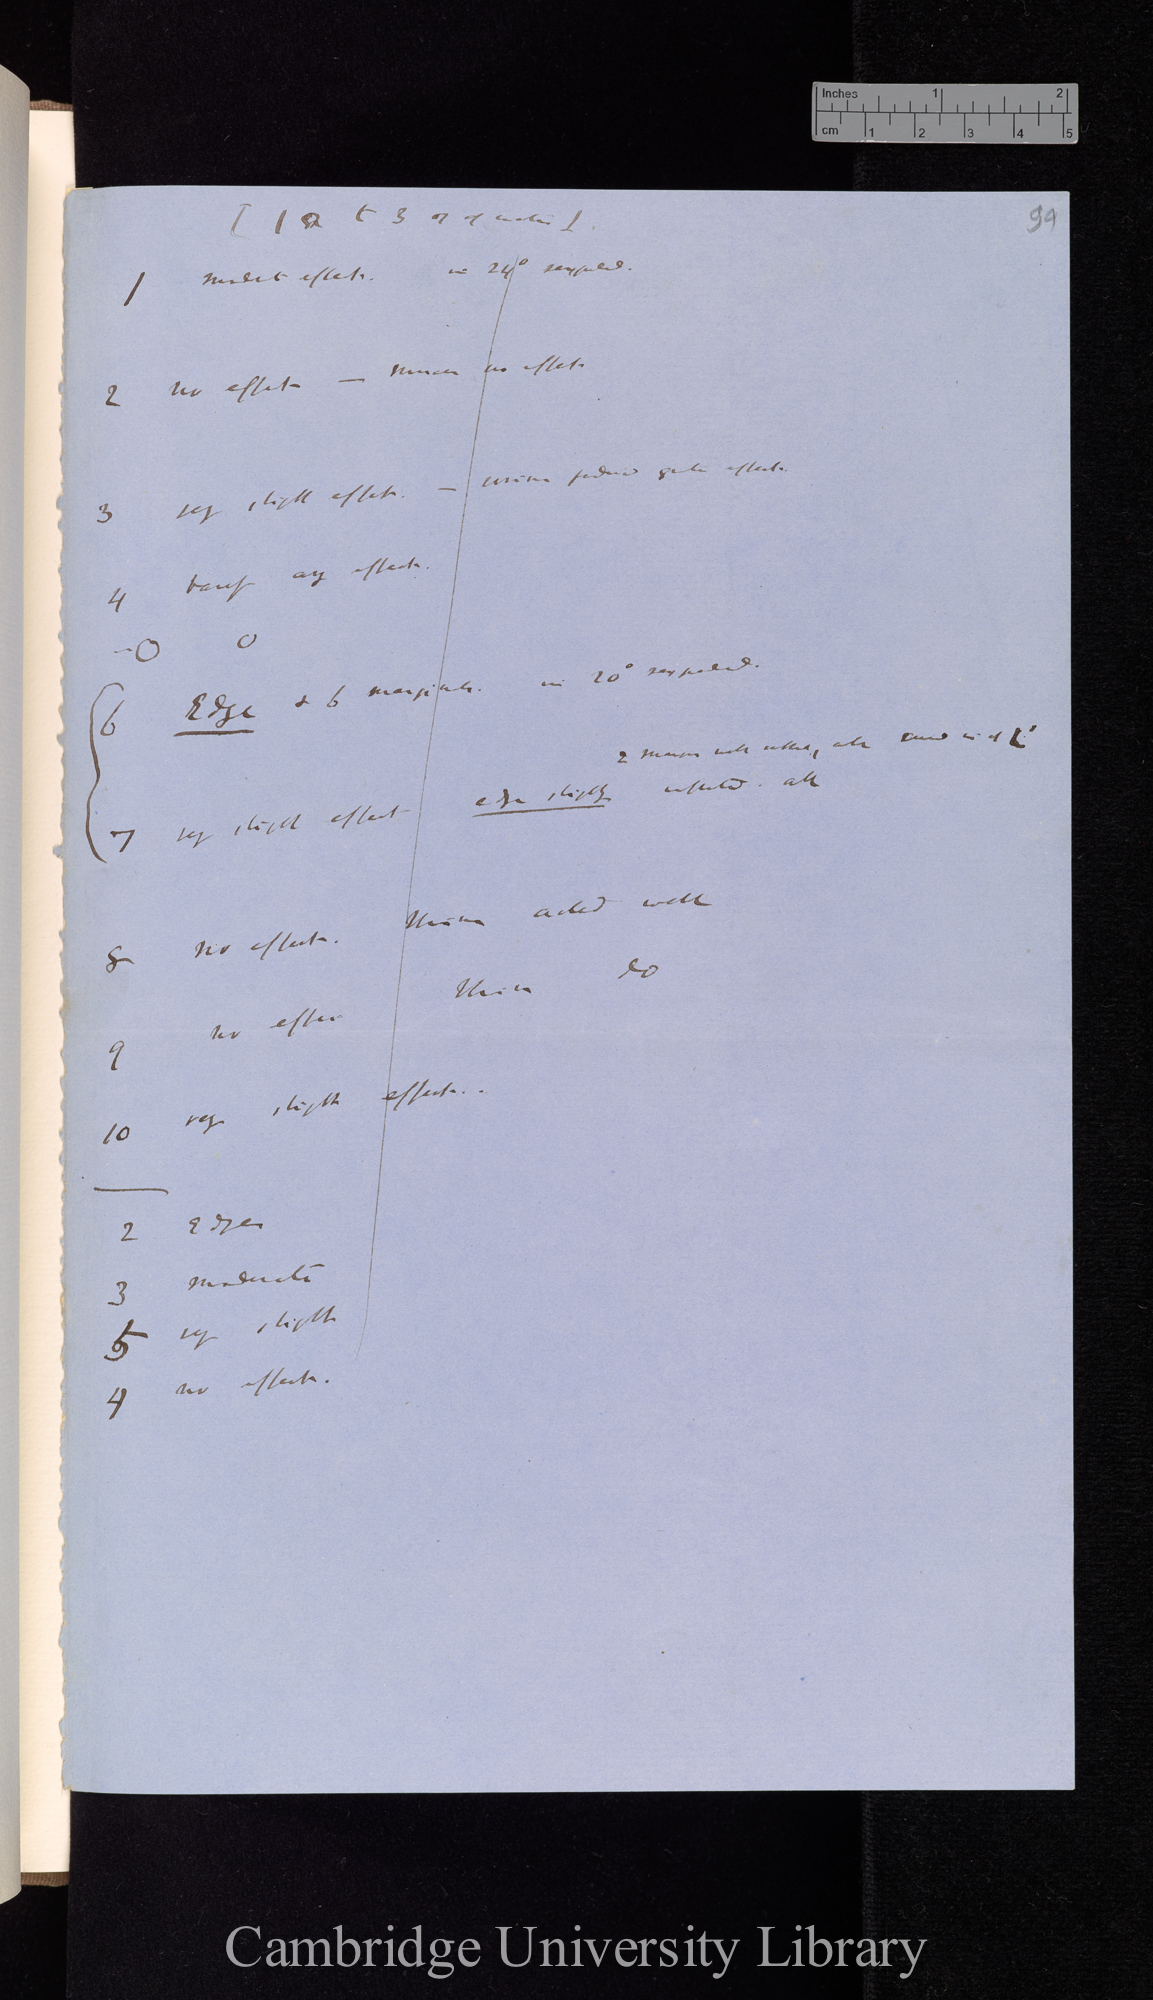 Inches 1 2
cm 1 2 3 4 5
94
[ 1 to 3 of of water ].
1 moderate effect. in 24° reexpanded.
2 no effect — no effect
3 very slight effect. — urine produced great effect.
4 hardly any effect.
0 0
6 Edge & 6 marginals. in 20° reexpanded.
2
7 very slight effect edge slightly inflected. all
8 no effect. Urine acted well
9 no effect Urine do
10 very slight effect..
2 Edges
3 moderate
5 very slight
4 no effect.
Cambridge University Library